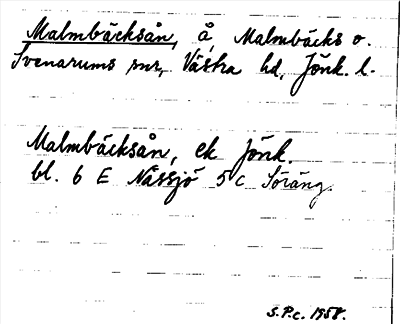 Malmbäcksån, å, Malmbäcks o.
Svenarums snr, Västra hd, Jönk. l.
Malmbäcksån, ek Jönk.
bl. 6 E Nässjö 5 c Söräng.
S.P.c. 1958.